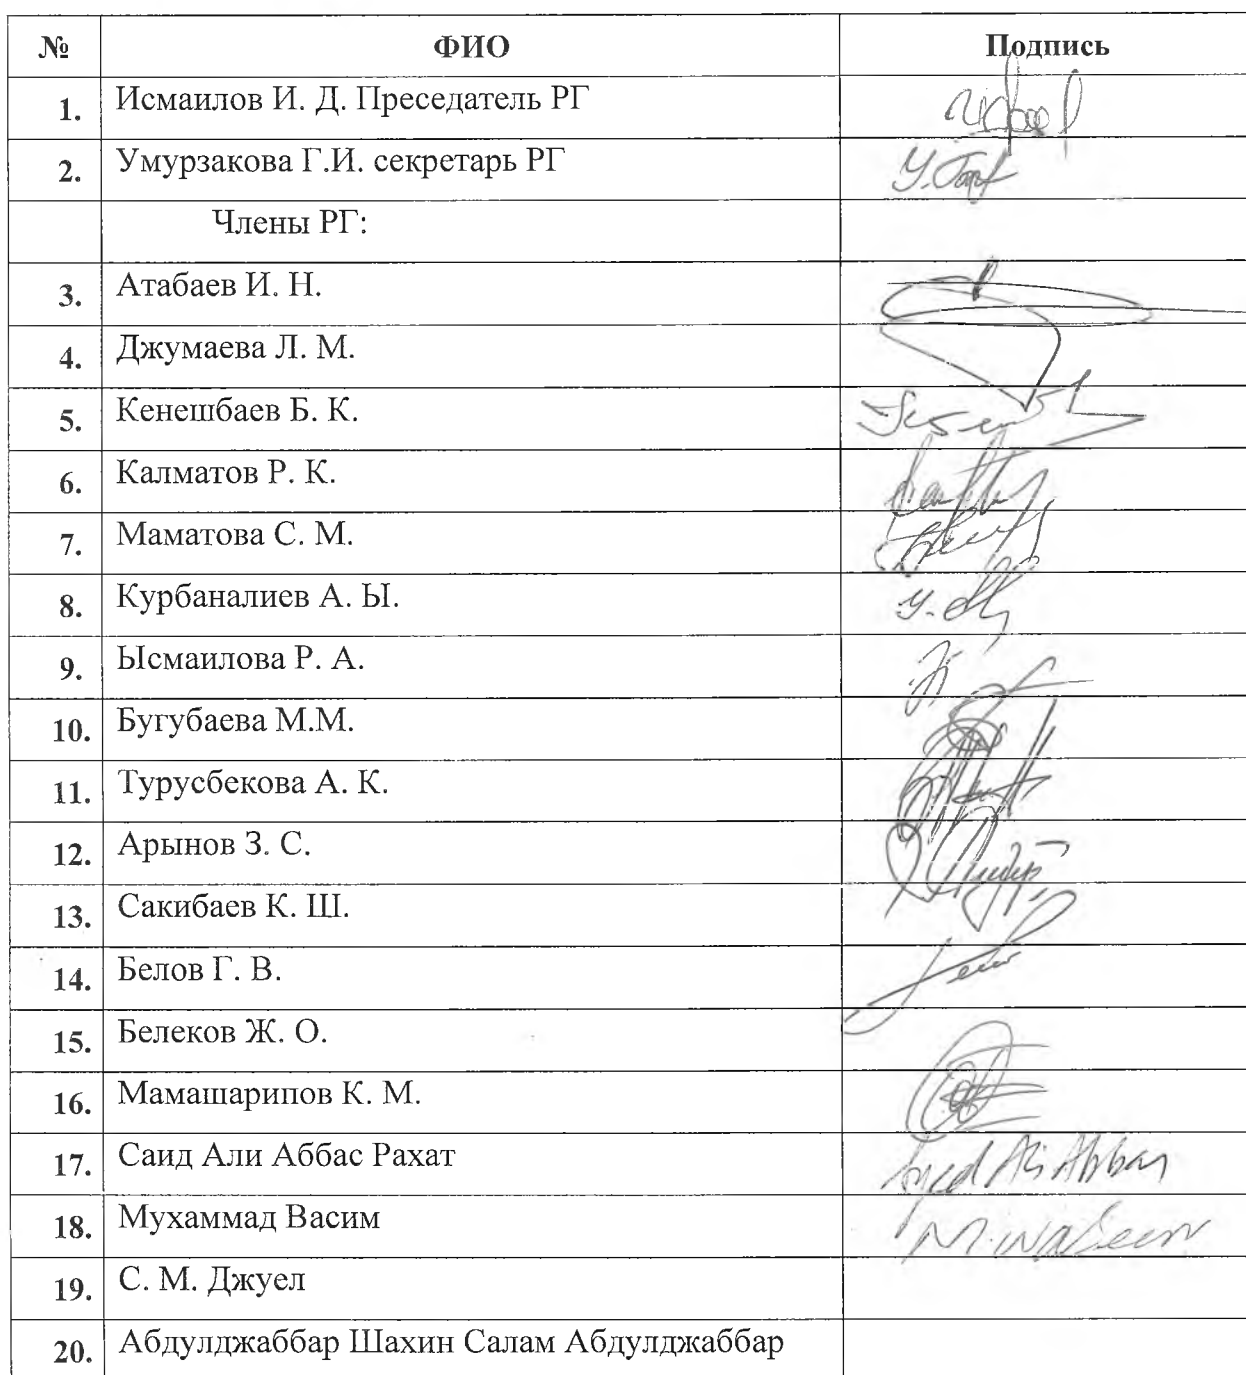 № ФИО Подпись
1. Исмаилов И. Д. Преседатель РГ
2. Умурзакова Г.И. секретарь РГ
Члены РГ:
3. Атабаев И. Н.
4. Джумаева Л. М.
5. Кенешбаев Б. К.
6. Калматов Р. К.
7. Маматова С. М.
8. Курбаналиев А. Ы.
9. Ысмаилова Р. А.
10. Бугубаева М.М.
11. Турусбекова А. К.
12. Арынов З. С.
13. Сакибаев К. Ш.
14. Белов Г. В.
15. Белеков Ж. О.
16. Мамашарипов К. М.
17. Саид Али Аббас Рахат Syed Ali Abbas
18. Мухаммад Васим M. Waseem
19. С. М. Джуел
20. Абдулджаббар Шахин Салам Абдулджаббар